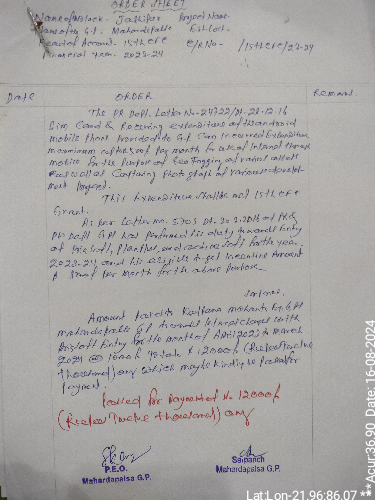 ORDER SHEET
Name of Block - Jashipur Project Name
Name of G.P. Mahardapalsa Est Cost -
Head of Account. 15th CFC C/R No - /15th CFC/23-24
Financial Year. 2023-24
Date ORDER Remark
The PR Deptt. Letter No-24722/Dt-28-12-16
Sim Card & Recurring expenditure of the android
mobile Phone provided to G.P
maximum of Rs per month for use of Internet through
mobile for the Purpose of Geo Tagging of various assets
as well as Capturing Photograph of various develop-
ment Project.
This Expenditure shall be met 15th CFC
Grant.
As per Letter No. 5703 Dt-20.3.2018 of P.R &
DW Deptt G.P has performed his duty towards Entry
of priasoft, Planplus, and actionsoft for the year.
2023-24, and his eligible to get Incentive Amount
per month for the above purpose.
Amount paid to Kalpana mohanta Ex. G.P
mahardapalsa G.P towards Internet charges with
Priasoft Entry for the month of April 2023 to March
2024 @ 1000/- Total = 12000/- (Rupees Twelve
thousand) only which may be kindly be passed for
payment.
Passed for Payment of Rs 12000/-
(Rupees Twelve thousand) only
P.E.O. Sarpanch
Mahardapalsa G.P. Mahardapalsa G.P.
Lat:Lon-21.96:86.07 **Acur:36.90 Date:16-08-2024